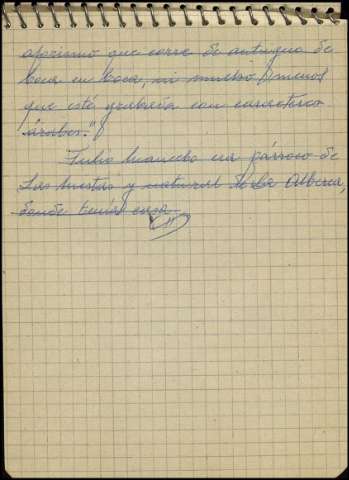 aforismo que corre de antiguo de
boca en boca, ni mucho menos
que esté grabada con caracteres
árabes."
Julio Mancebo era párroco de
Las Mestas y natural de La Alberca,
donde tenía casa